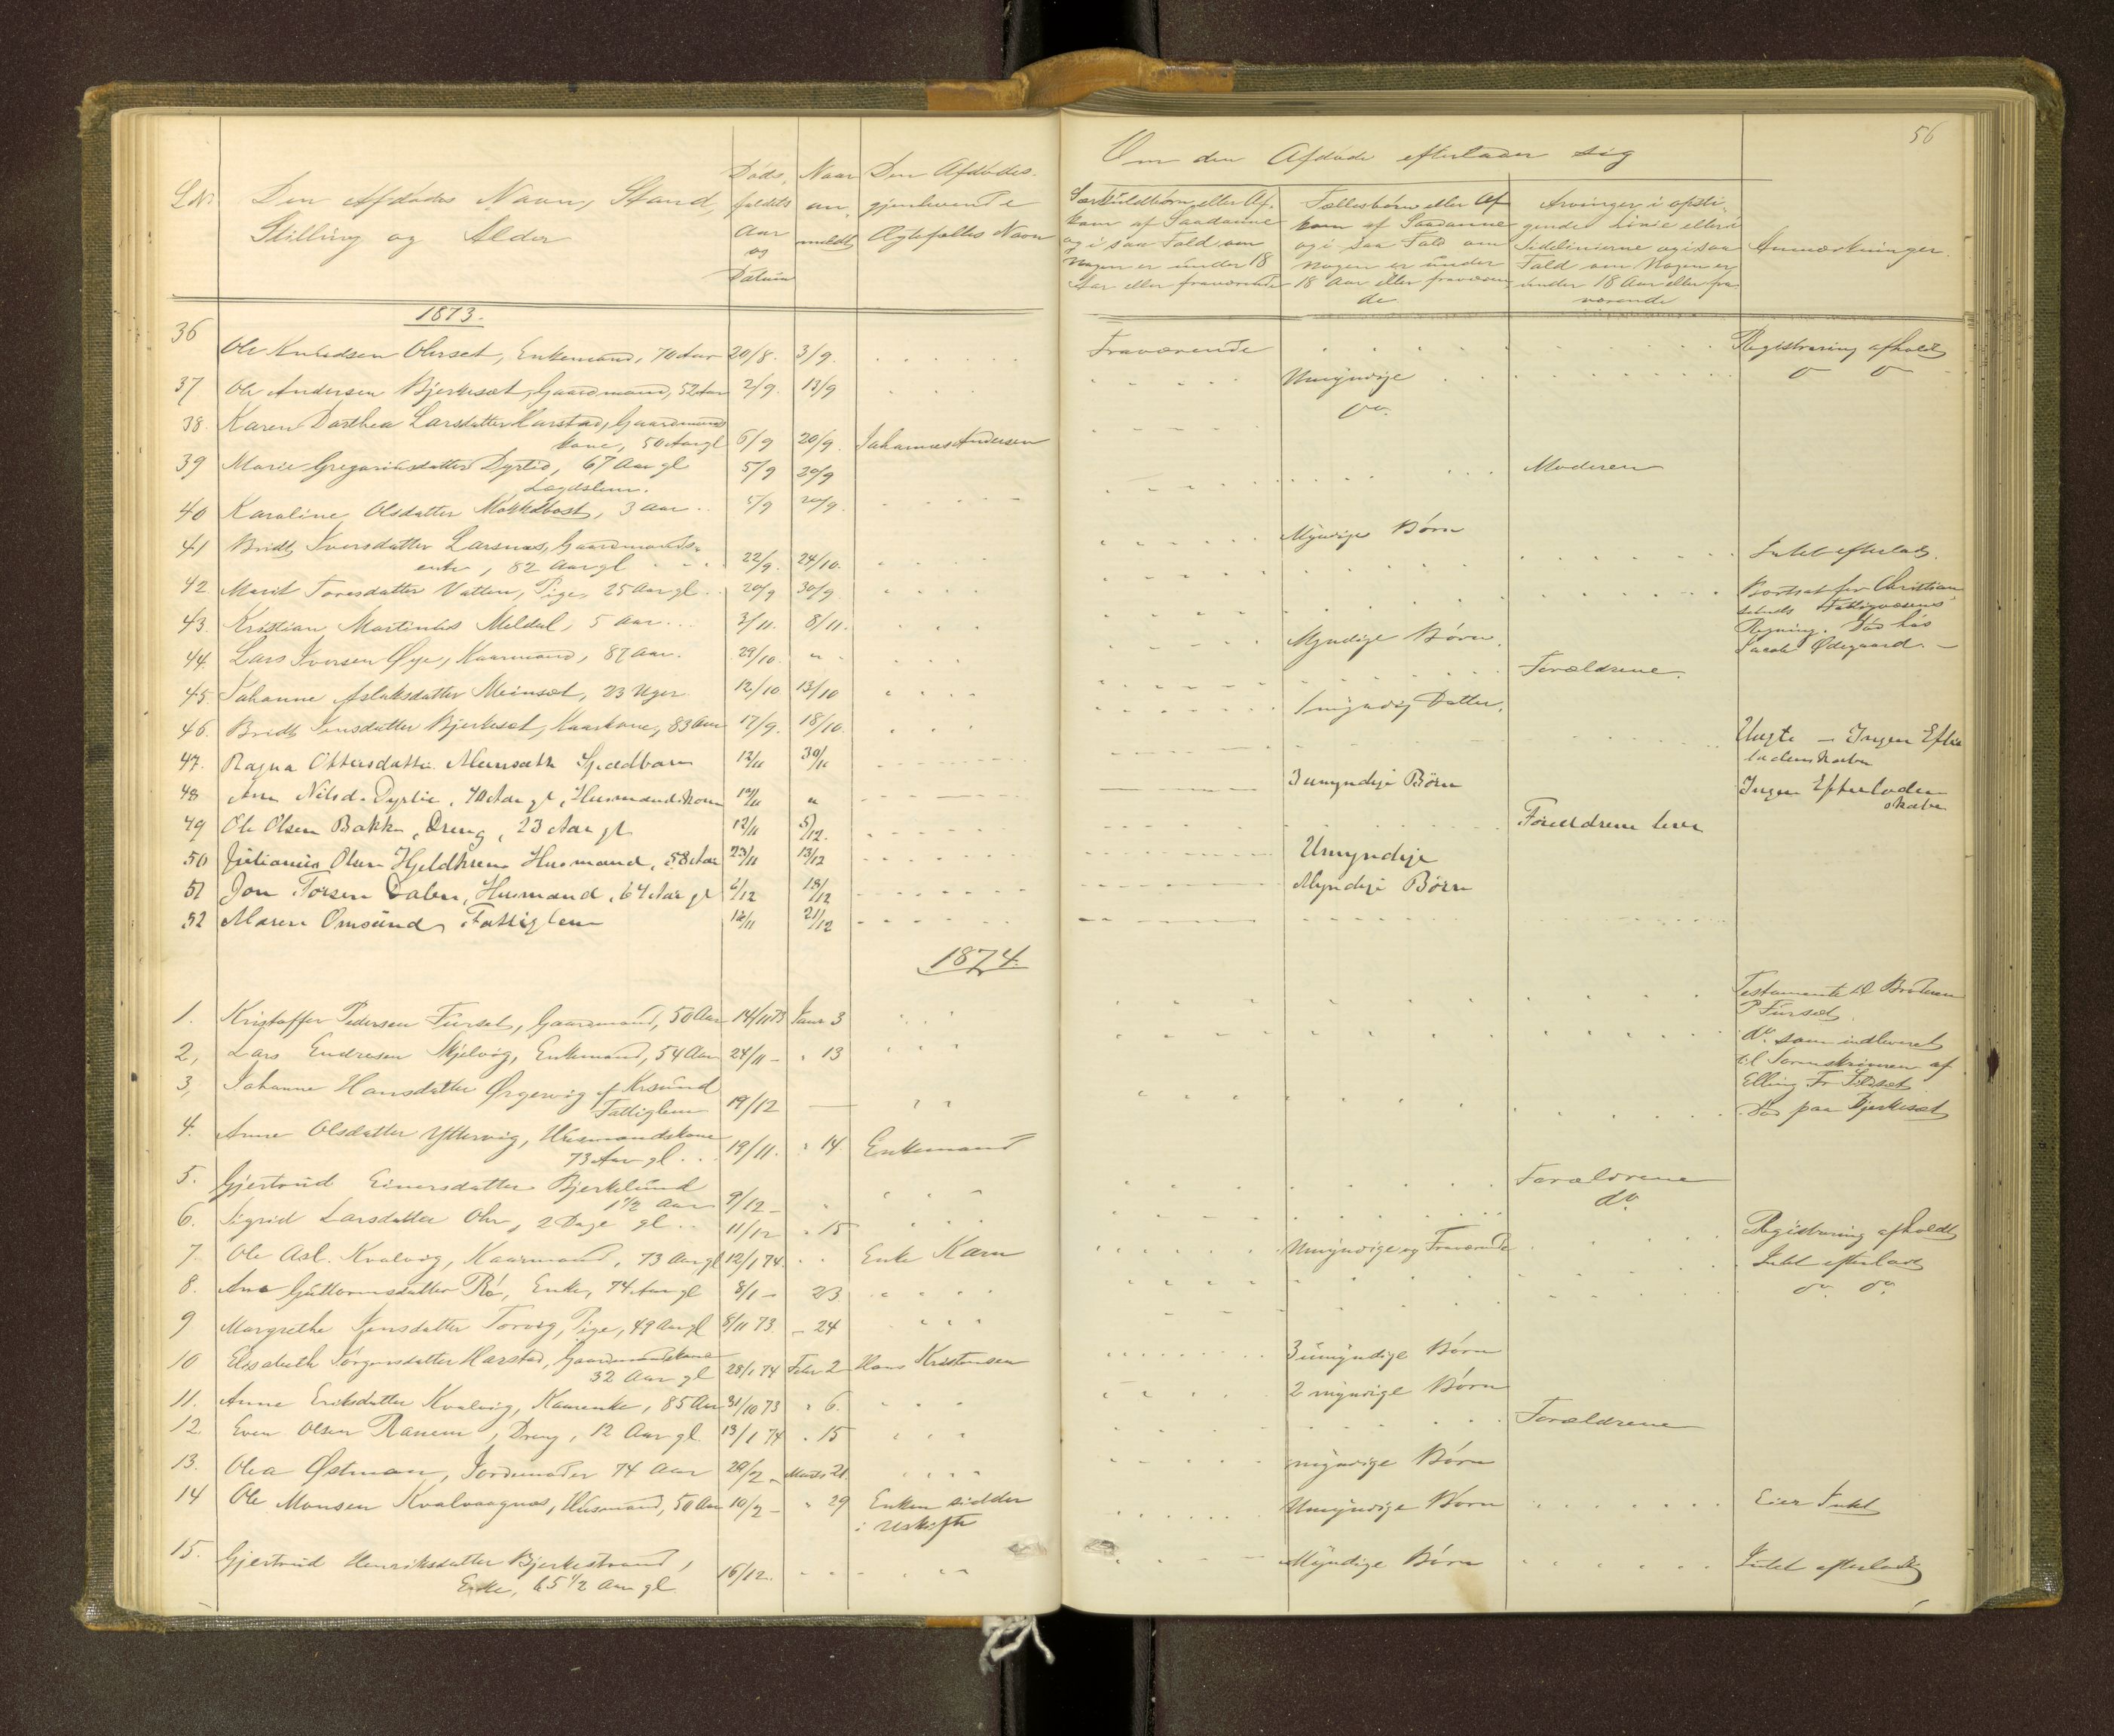 56
Om den Afdøde efterlader sig
L.Nr. Den Afdødes Navn, Stand, Stilling og Alder
Døds, faldets Aar og Datum
Naar an, meldt
Den Afdødes gjenlevende Ægtefælles Navn
Særkuldbørn eller Af, kom af Saadanne og i saa Fald om Nogen er under 18 Aar eller fraværende
Fællesbørn eller Af kom af Saadanne og i saa Fald om Nogen er under 18 Aar eller fraværen de
Arvinger i opsti, gende Linie eller i Sidelinierne og i saa Fald om Nogen er under 18 Aar eller fra værende
Anmærkninger.
1873.
36 Ole Knudsen Olsset, Enkemand, 70 Aar 20/8. 3/9. Fraværende Registrering afholdt
37 Ole Andersen Bjerkeset, Gaardmand, 52 Aar 2/9. 13/9 Umyndige do do
38. Karen Dorthea Larsdatter Harstad, Gaardmands
kone, 50 Aar gl 6/9 20/9. Johannes Andersen do.
39 Marie Gregoriusdatter Dyrlid, 67 Aar gl 5/9 20/9
Lægdslem.
40 Karoline Olsdatter Mokkelbost, 3 Aar 5/9 20/9. Moderen
41 Bridt Iversdatter Larsnes, Gaardmands-
enke, 82 Aar gl 22/9. 24/10. Myndige Børn
42 Marit Toresdatter Vatten, Pige, 25 Aar gl 20/9 30/9 Intet efterladt.
43. Kristian Martinius Meldal, 5 Aar 3/11. 8/11. Bortsat for Christian,
sunds Fattigvæsens
Regning. Død hos
Jacob Ødegaard. -
44. Lars Iversen Øye, Kaarmand, 87 Aar. 29/10. " Myndige Børn.
45. Johanne Aslaksdatter Meinset, 23 Uger 12/10 13/10 Forældrene.
46. Bridt Jensdatter Bjerkeset, Kaarkone, 83 Aar 17/9. 18/10. 1 myndig Datter.
47. Ragna Ottersdatter Meinseth Spædbarn 12/11 30/11 Uægte - Ingen Efter
ladenskaber
48 Ane Nilsd. Dyrlie, 70 Aar gl, Husmandskone 12/11 " 3 umyndige Børn Ingen Efterladen
skaber
49 Ole Olsen Bakk, Dreng, 23 Aar gl 12/11 5/12. Forældrene lever
50 Julianus Olsen Hjeldkrem Husmand, 58 Aar 23/11 13/12 Umyndige
51 Jon Torsen Dalen, Husmand, 64 Aar gl 2/12 18/12 Myndige Børn
52 Maren Omsund, Fattiglem 12/11 21/12
1874.
1. Kristoffer Pedersen Furset, Gaardmand, 50 Aar 14/11 73 Janr 3 Testamente til Broderen
P Furset.
2, Lars Endresen Skjelvig, Enkemand, 54 Aar 24/11 - " 13 do. som indleveret
til Sorenskriveren af
Elling Fr Sildset
3, Johanne Hansdatter Ørgervig af Krsund
Fattiglem 19/12 Død paa Bjerkeset
4. Anne Olsdatter Yttervig, Husmandskone
73 Aar gl 19/11. " 14. Enkemand
5. Gjertrud Einersdatter Bjerkelund
1 1/2 Aar 9/12 - Forældrene
6. Sigrid Larsdatter Ohr, 2 Dage gl 11/12 " 15 do.
7. Ole Asl. Kvalvig, Kaarmand, 73 Aar gl 12/1 74. Enke Karen Umyndige og Fraværende Registrering afholdt
8. Ane Guttormsdatter Rø, Enke, 74 Aar gl 8/1 - 23 Intet efterladt
9 Margrethe Jensdatter Torvig, Pige, 49 Aar gl 8/11 73. - 24 do. do.
10 Elisabeth Jørgensdatter Harstad, Gaardmandskone
32 Aar gl 28/1 74 Febr 2 Hans Kristensen 3 umyndige Børn
11. Anne Eriksdatter Kvalvig, Kaarenke, 85 Aar 31/10 73 " 6. 2 myndige Børn
12. Even Olsen Ranem, Dreng, 12 Aar gl 13/1 74 " 15 Forældrene
13. Olea Østman, Jordemoder 74 Aar 20/2 - Marts 21. myndige Børn
14 Ole Monsen Kvalvaagnæs, Husmand, 50 Aar 10/2 - " 29 Enken sidder
i uskifte Umyndige Børn Eier Intet
15. Gjertrud Henriksdatter Bjerkestrand,
Enke, 65 1/2 Aar gl 16/12. Myndige Børn Intet efterladt